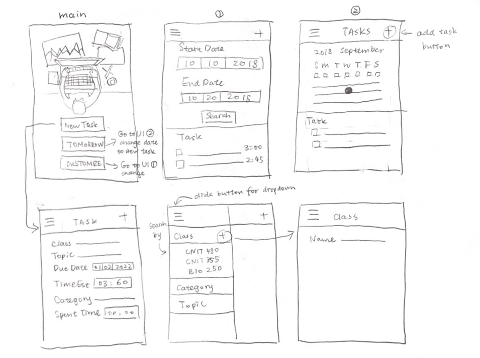 main
New Task
TOMORROW
Go to UI ②
change date
to new task
CUSTOMIZE
Go to UI ①
change
①
+
Start Date
10 10 2018
End Date
10 20 2018
Search
Task
3:00
2:45
②
TASKS +
add task
button
2018 September
S M T W T F S
Task
TASK +
Class
Topic
Due Date 01/02/2022
Time Est 03:60
Category
Spent Time 00:00
slide button for dropdown
+
Search
by
Class +
CNIT 480
CNIT 355
BIO 250
Category
Topic
Class
Name